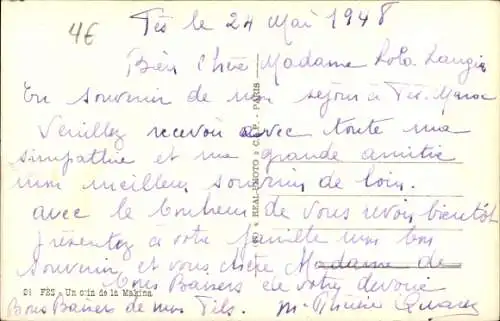 4€
Fès le 24 Mai 1948
Bien Chère Madame Lola
En souvenir de mon séjour à Fès. Maroc
Veuillez recevoir avec toute ma
simpathie et ma grande amitie
mon meilleur souvenir de loin.
avec le bonheur de vous revoir bientôt
présentez à votre famille mon bon
souvenir et vous chère Madame de
Bons Baisers de votre devoué
FÈS - Un coin de la Makina
Bons Baisers de mon Fils.
REAL-PHOTO - C.A.P. - PARIS